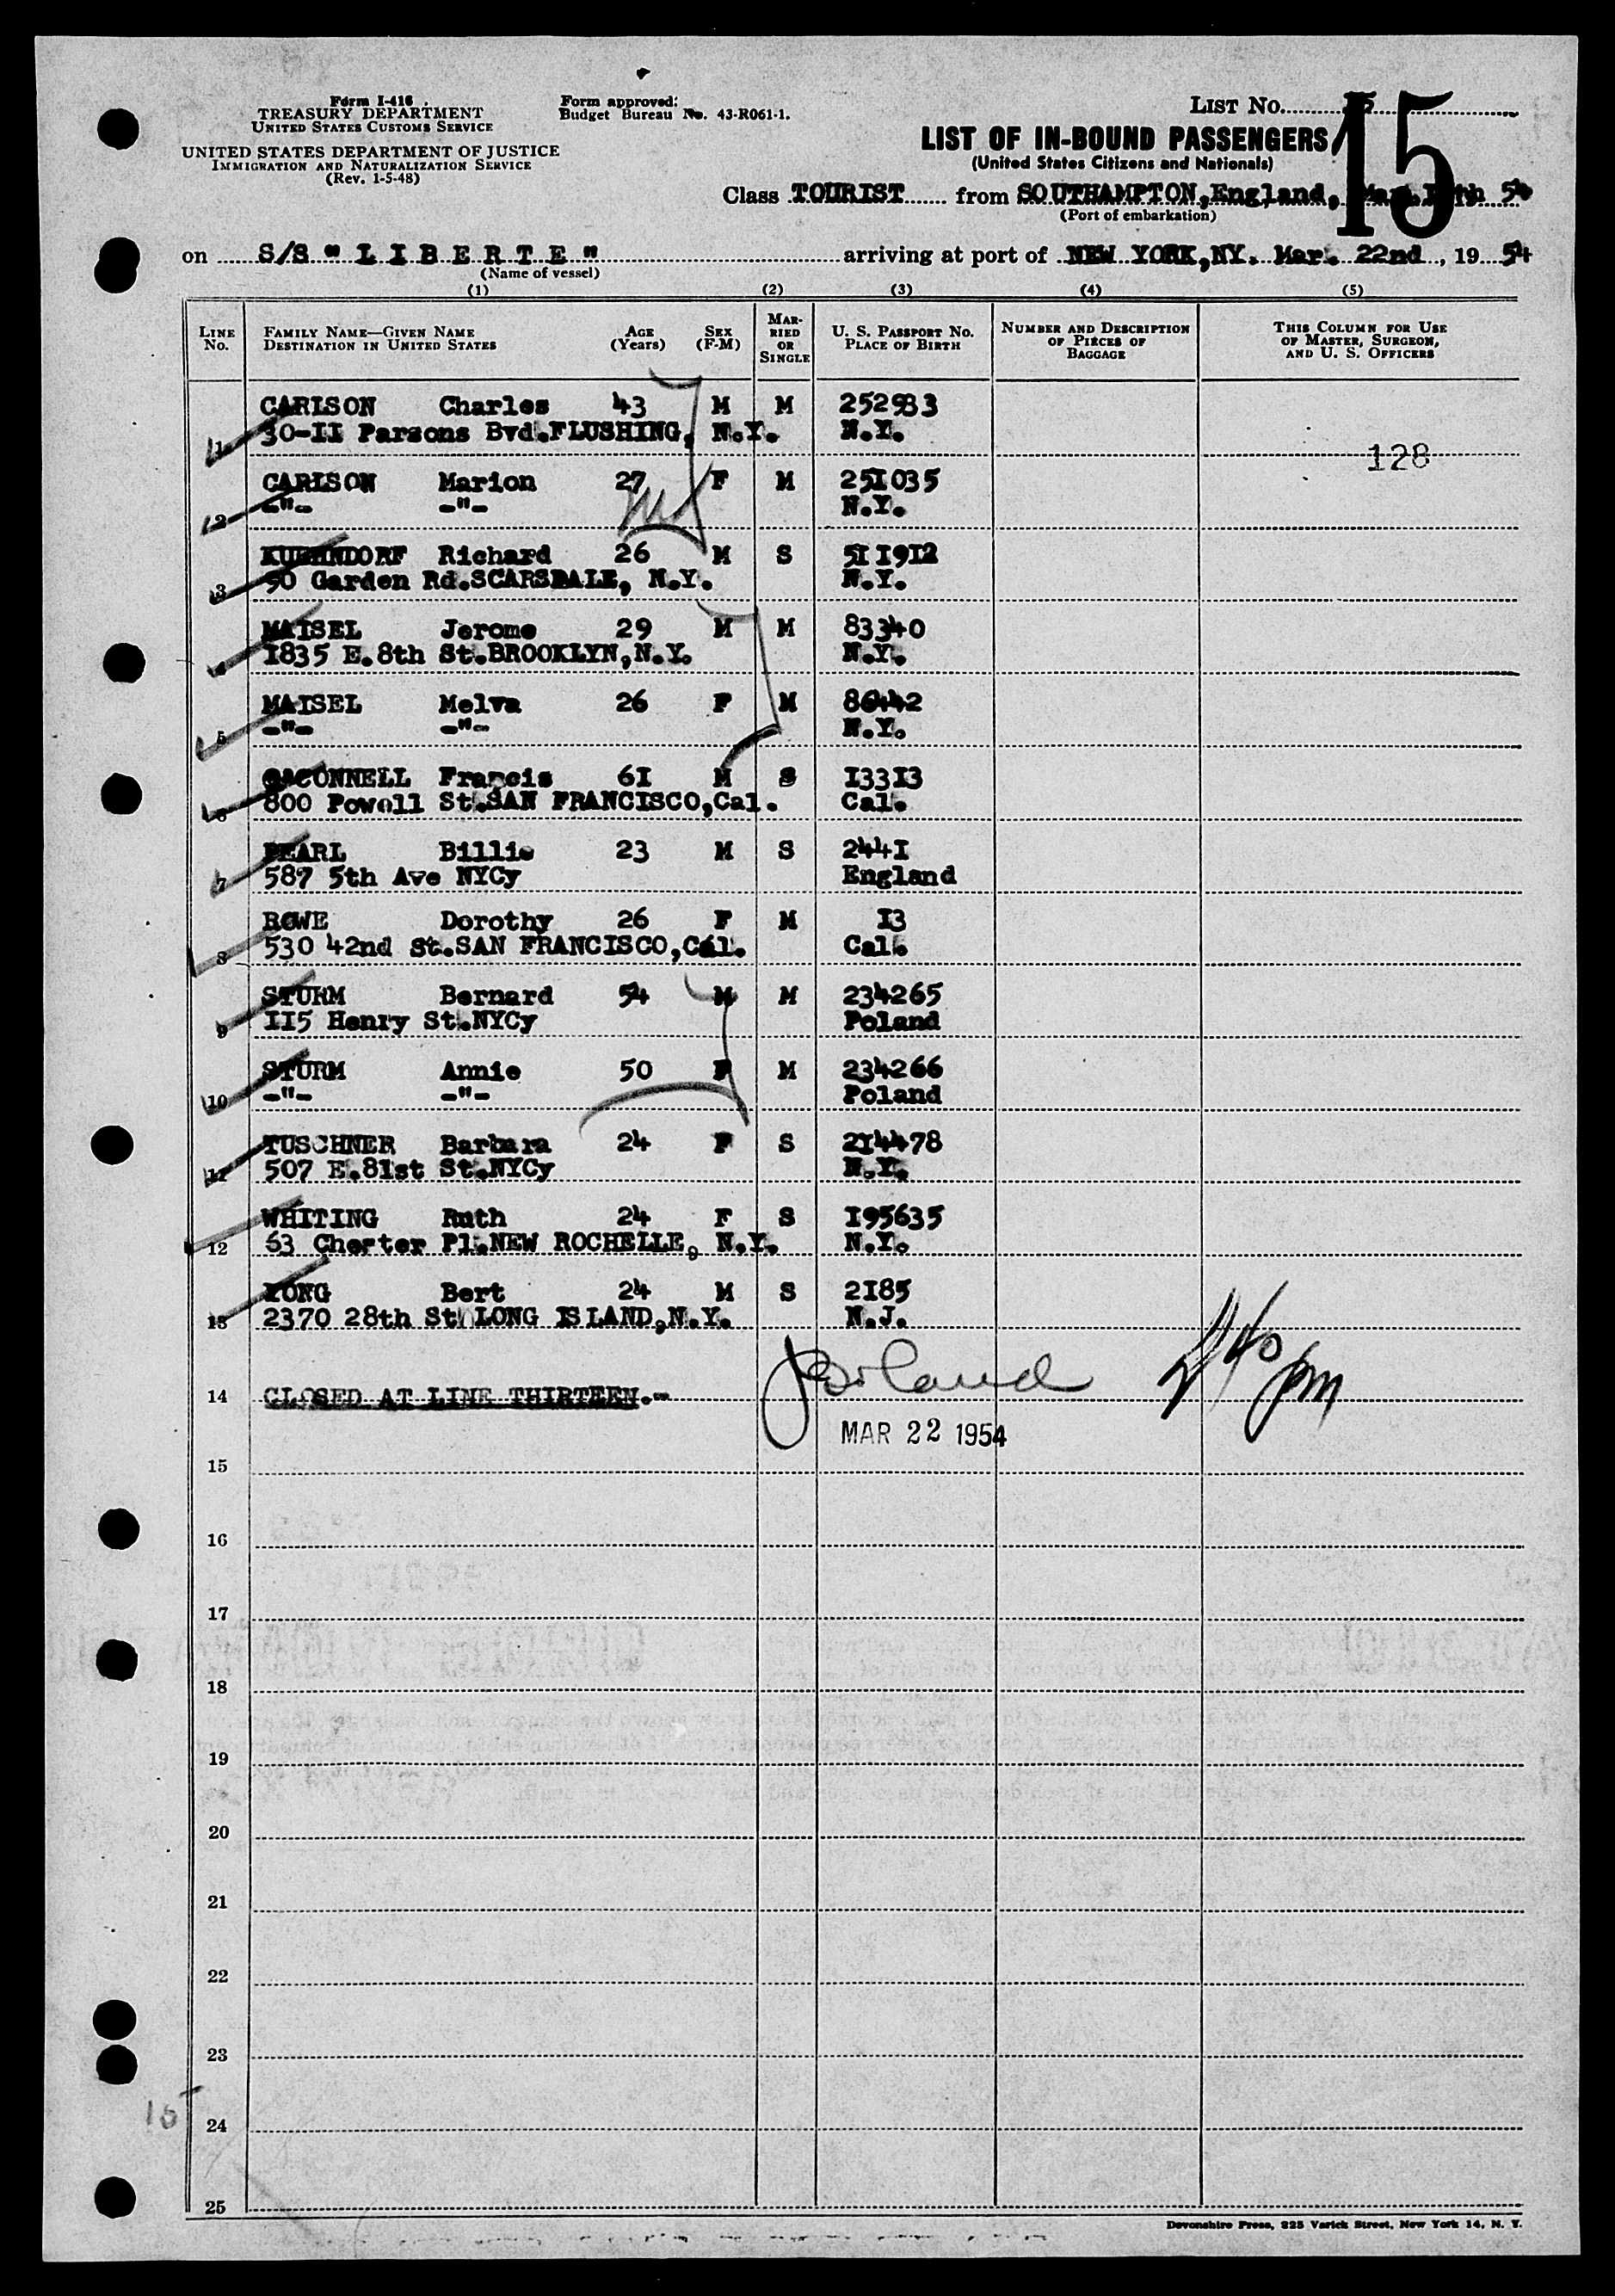 Form I-416
TREASURY DEPARTMENT
UNITED STATES CUSTOMS SERVICE
UNITED STATES DEPARTMENT OF JUSTICE
IMMIGRATION AND NATURALIZATION SERVICE
(Rev. 1-5-48)
Form approved:
Budget Bureau No. 43-R061-1.
LIST NO. 15
LIST OF IN-BOUND PASSENGERS
(United States Citizens and Nationals)
Class TOURIST from SOUTHAMPTON,England, 54
(Port of embarkation)
on S/S "LIBERTE" arriving at port of NEW YORK,NY. Mar. 22nd, 19 54
(Name of vessel)
(1) (2) (3) (4) (5)
LINE NO. FAMILY NAME—GIVEN NAME DESTINATION IN UNITED STATES AGE (Years) SEX (F-M) MARRIED OR SINGLE U. S. PASSPORT NO. PLACE OF BIRTH NUMBER AND DESCRIPTION OF PIECES OF BAGGAGE THIS COLUMN FOR USE OF MASTER, SURGEON, AND U. S. OFFICERS
CARLSON Charles 43 M M 252983
1 30-II Parsons Bvd.FLUSHING, N.Y. N.Y.
128
CARLSON Marion 27 F M 251035
2 -"- -"- N.Y.
Richard 26 M S 5I1912
3 50 Garden Rd.SCARSDALE, N.Y. N.Y.
MAISEL Jerome 29 M M 83340
4 1835 E.8th St.BROOKLYN,N.Y. N.Y.
MAISEL Melva 26 F M 86442
5 -"- -"- N.Y.
Francis 6I M S I33I3
6 800 Powell St.SAN FRANCISCO,Cal. Cal.
PEARL Billie 23 M S 244I
7 587 5th Ave NYCy England
ROWE Dorothy 26 F M I3
8 530 42nd St.SAN FRANCISCO,Cal. Cal.
STURM Bernard 54 M M 234265
9 II5 Henry St.NYCy Poland
STURM Annie 50 F M 234266
10 -"- -"- Poland
TUSCHNER Barbara 24 F S 2I4478
11 507 E.8Ist St.NYCy N.Y.
WHITING Ruth 24 F S I95635
12 63 Chester Pl.NEW ROCHELLE, N.Y. N.Y.
YONG Bert 24 M S 2I85
13 2370 28th St. LONG ISLAND,N.Y. N.J.
14 CLOSED AT LINE THIRTEEN.-
MAR 22 1954
15
16
17
18
19
20
21
22
23
24
25
Devonshire Press, 225 Varick Street, New York 14, N. Y.